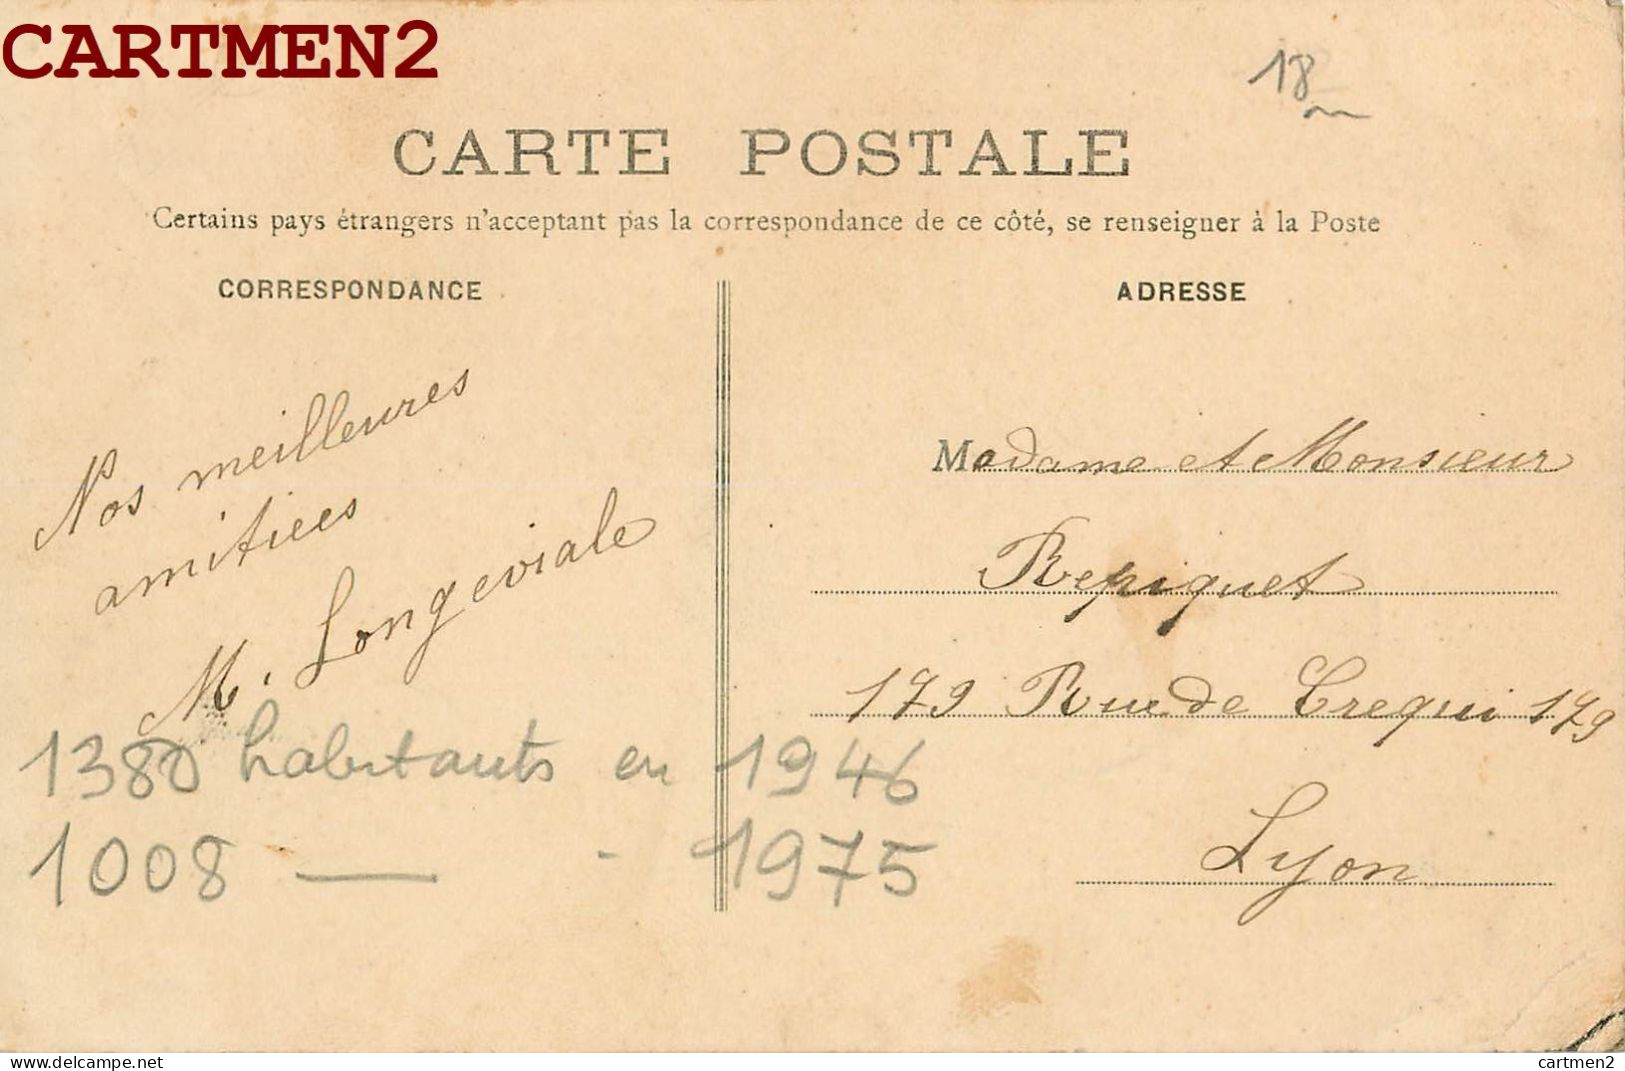 CARTMEN2
18
CARTE POSTALE
Certains pays étrangers n'acceptant pas la correspondance de ce côté, se renseigner à la Poste
CORRESPONDANCE
Nos meilleures
amitiees
M. Longeviale
1380 habitants en 1946
1008 — - 1975
ADRESSE
Madame et Monsieur
Repiquet
179 Rue de Crequi 179
Lyon
delcampe.net
cartmen2